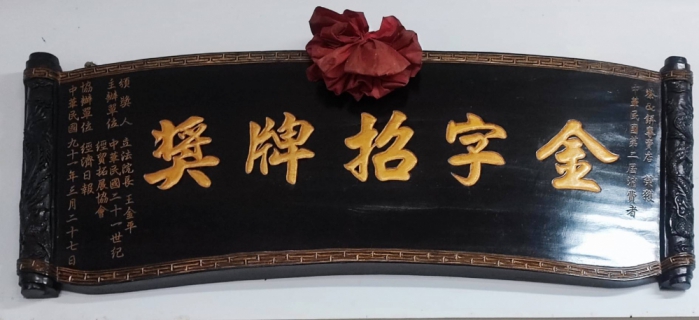 中華民國第二屆消費者
金字招牌獎
頒獎人 立法院長 王金平
主辦單位 中華民國二十一世紀
經貿拓展協會
協辦單位 經濟日報
中華民國九十一年三月二十七日